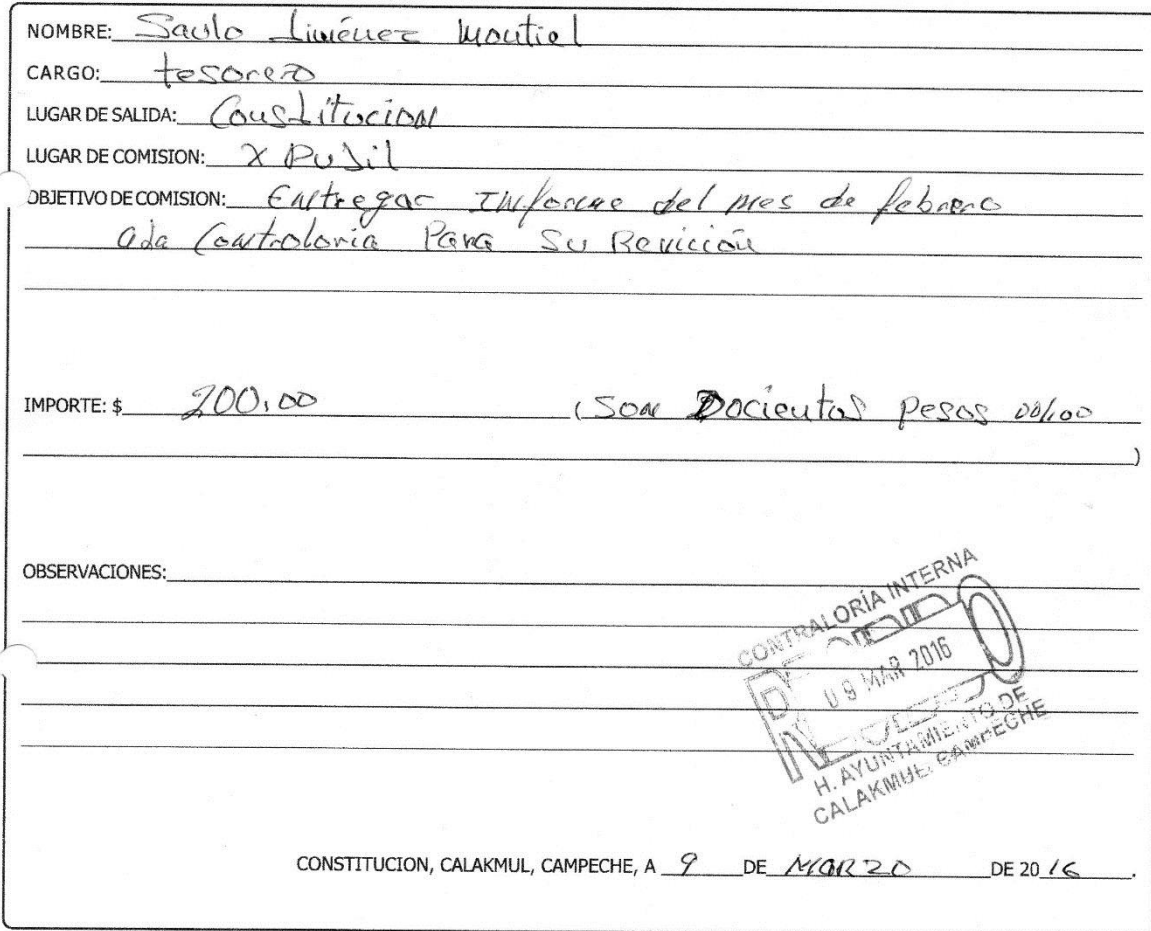 NOMBRE: Saulo Jiménez Montiel
CARGO: tesorero
LUGAR DE SALIDA: Constitucion
LUGAR DE COMISION: X Pujil
OBJETIVO DE COMISION: Entregar Informe del mes de febrero
a da Controloria Para Su Revición
IMPORTE: $ 200.00 (Son Docientos Pesos 00/100
)
OBSERVACIONES:
CONTRALORÍA INTERNA
RECIBIDO
09 MAR 2016
H. AYUNTAMIENTO DE
CALAKMUL, CAMPECHE
CONSTITUCION, CALAKMUL, CAMPECHE, A 9 DE MARZO DE 2016.